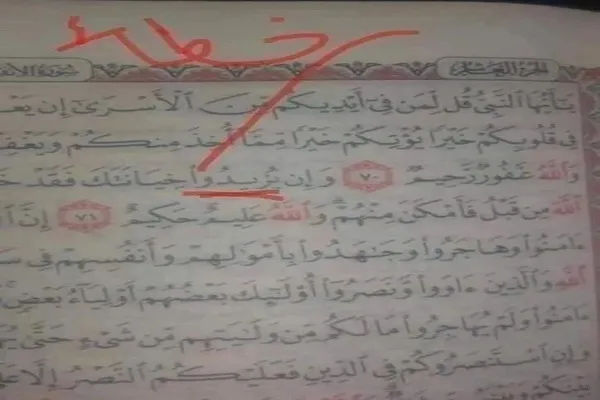 خطاء
الجزء العاشر
سورة الأنف
يَٰٓأَيُّهَا ٱلنَّبِىُّ قُل لِّمَن فِىٓ أَيْدِيكُم مِّنَ ٱلْأَسْرَىٰٓ إِن يَعْـ
فِى قُلُوبِكُمْ خَيْرًا يُؤْتِكُمْ خَيْرًا مِّمَّآ أُخِذَ مِنكُمْ وَيَغْفِـ
وَٱللَّهُ غَفُورٌ رَّحِيمٌ ٧٠ وَإِن خِيَانَتَكَ فَقَدْ خَـ
ٱللَّهَ مِن قَبْلُ فَأَمْكَنَ مِنْهُمْ وَٱللَّهُ عَلِيمٌ حَكِيمٌ ٧١ إِنَّ ٱ
ءَامَنُوا۟ وَهَاجَرُوا۟ وَجَٰهَدُوا۟ بِأَمْوَٰلِهِمْ وَأَنفُسِهِمْ فِى سَـ
ٱللَّهِ وَٱلَّذِينَ ءَاوَوا۟ وَّنَصَرُوٓا۟ أُو۟لَٰٓئِكَ بَعْضُهُمْ أَوْلِيَآءُ بَعْضٍ
ءَامَنُوا۟ وَلَمْ يُهَاجِرُوا۟ مَا لَكُم مِّن وَلَٰيَتِهِم مِّن شَىْءٍ حَتَّىٰ يُهَـ
وَإِنِ ٱسْتَنصَرُوكُمْ فِى ٱلدِّينِ فَعَلَيْكُمُ ٱلنَّصْرُ إِلَّا عَلَـ